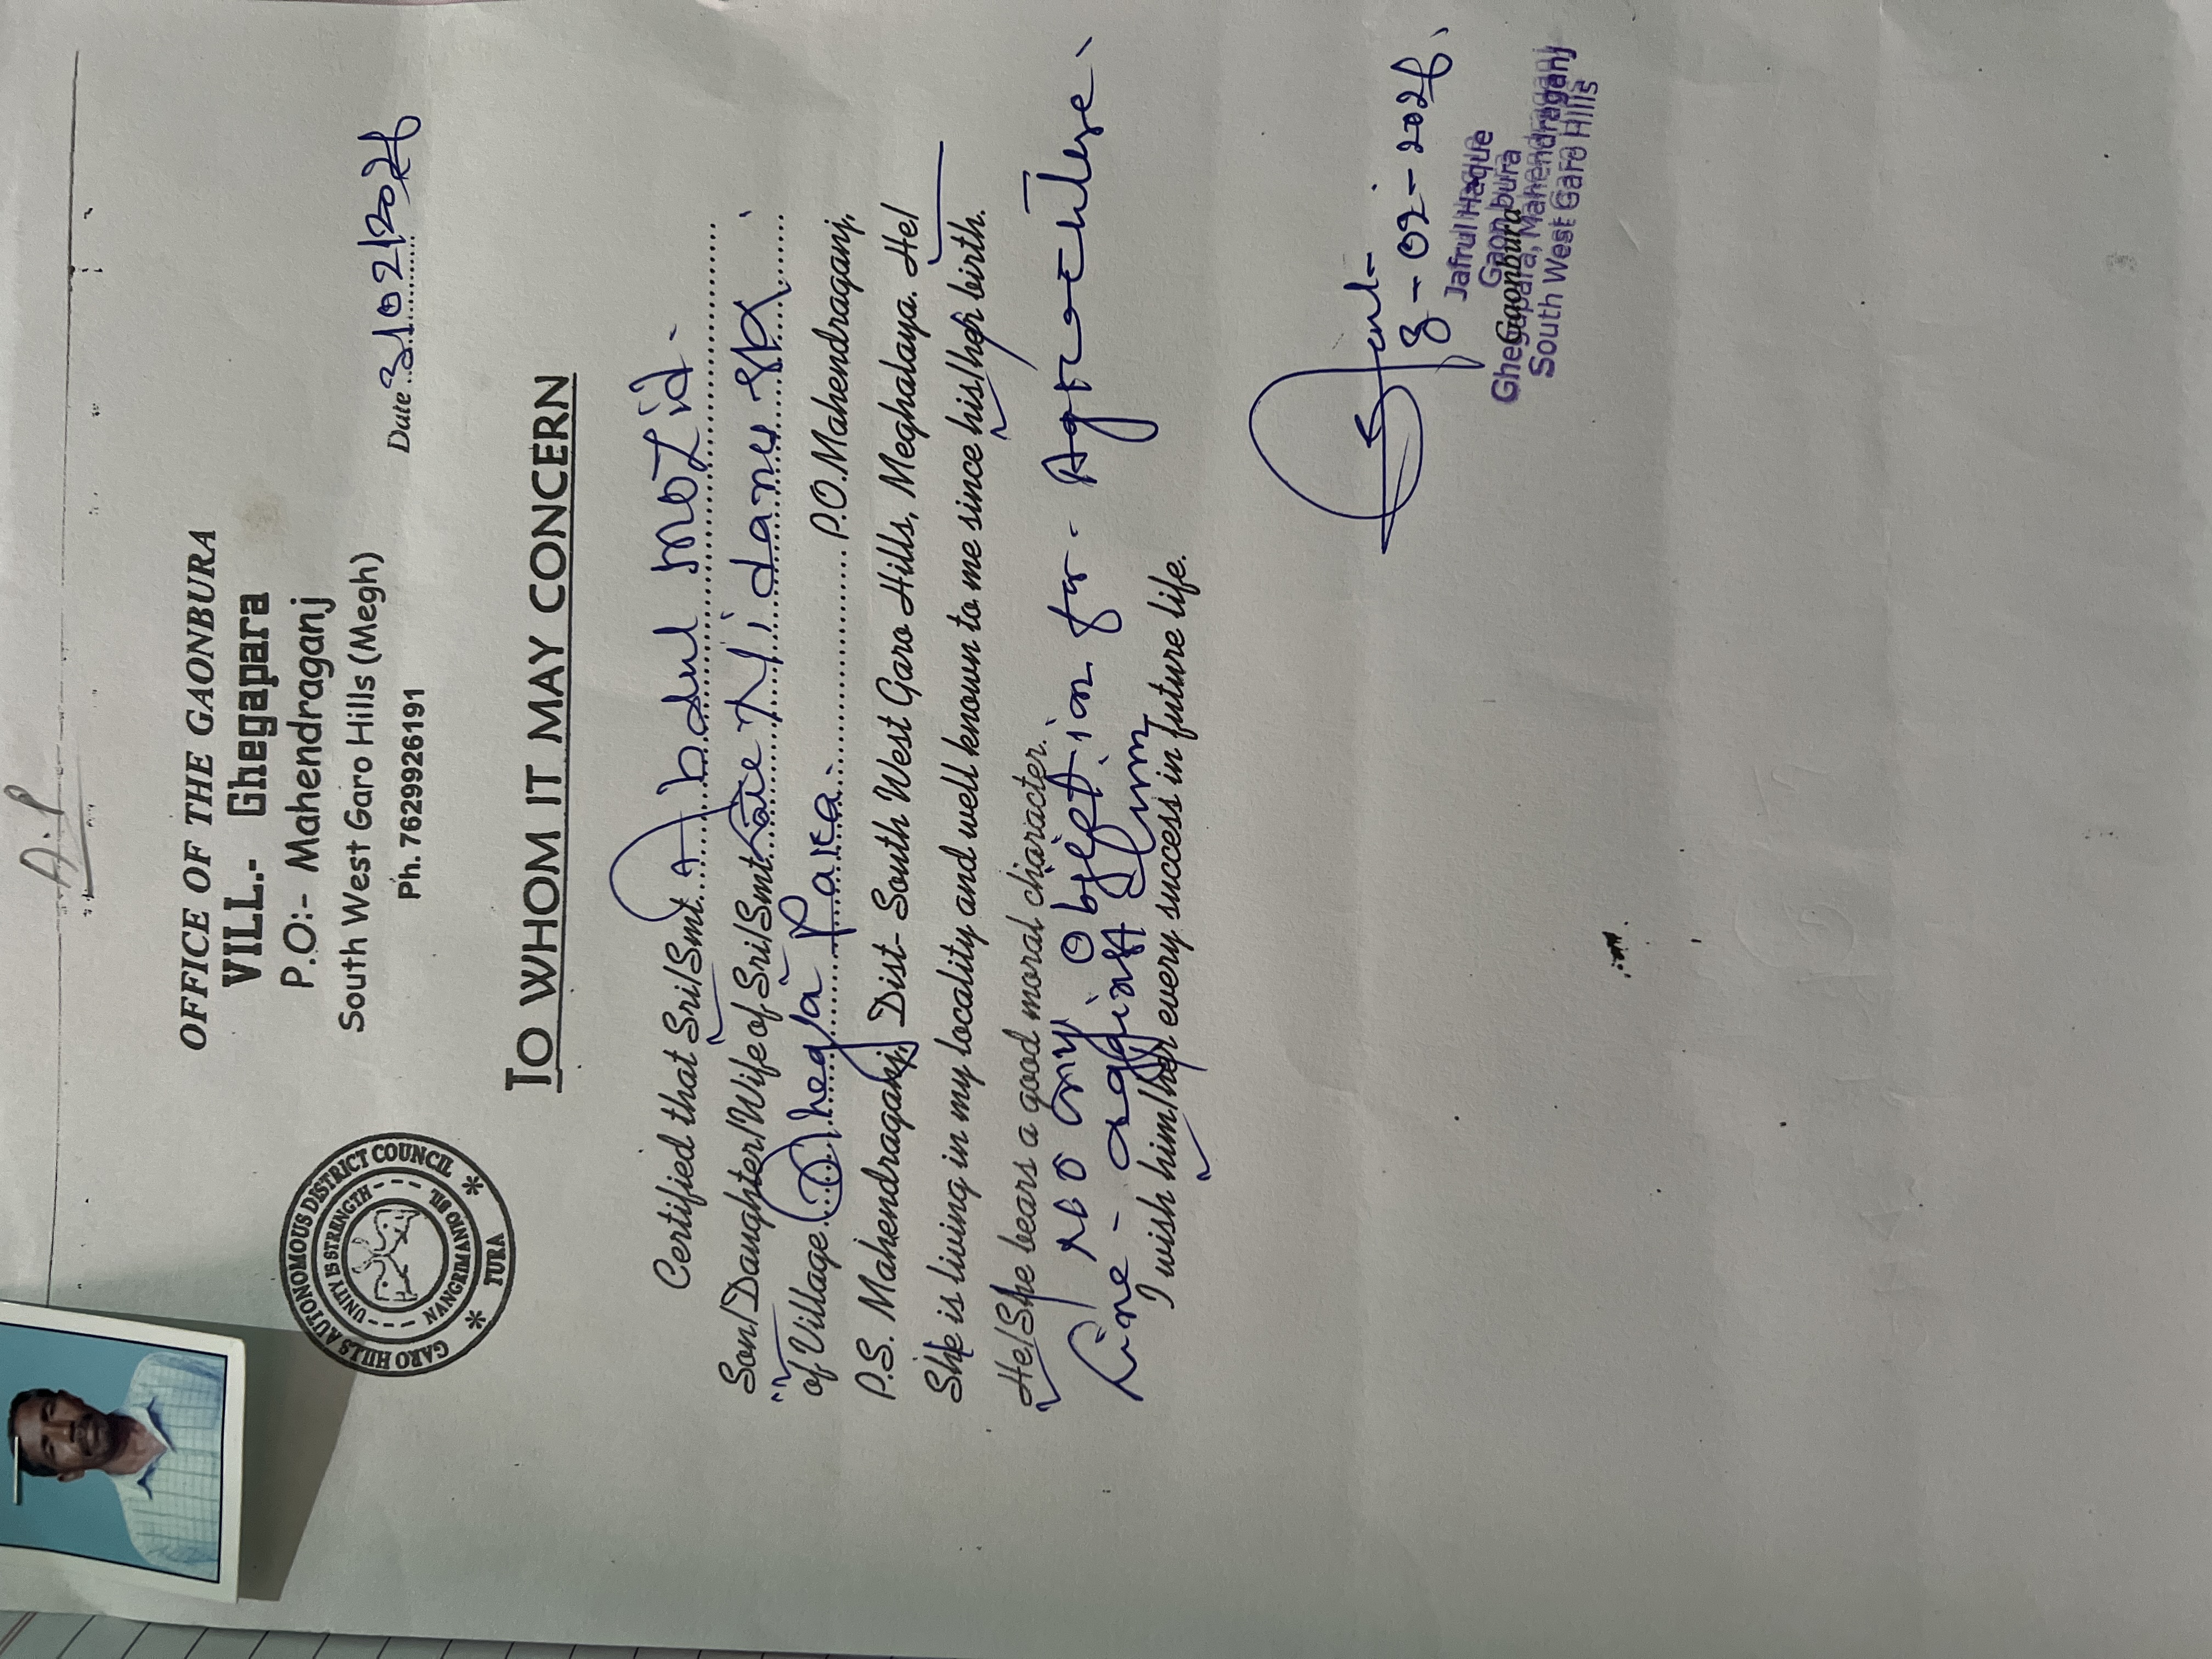 A.P
OFFICE OF THE GAONBURA
VILL.- Ghegapara
P.O:- Mahendraganj
South West Garo Hills (Megh)
Ph. 7629926191
Date 3/02/2026
GARO HILLS AUTONOMOUS DISTRICT COUNCIL
UNITY IS STRENGTH
TURA
TO WHOM IT MAY CONCERN
Certified that Sri/Smt. Abdul Motid.
Son/Daughter/Wife of Sri/Smt. Late
of Village Ghega Para. P.O.Mahendraganj,
P.S. Mahendraganj, Dist- South West Garo Hills, Meghalaya. He/
She is living in my locality and well known to me since his/her birth.
He/She bears a good moral character.
No any objection for Agricenlture
Line - against him
I wish him/her every success in future life.
3-02-2026
Jafrul Haque
Gaon bura
Gaonbura
Ghegapara, Mahendraganj
South West Garo Hills